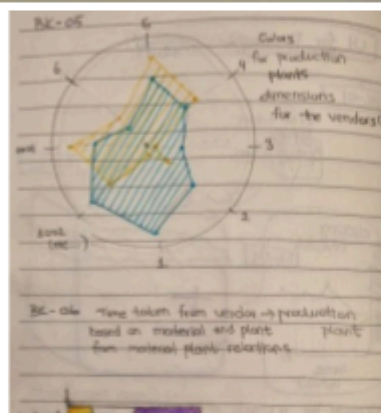 BK-05
6
Colors
for production
4
plants
6
dimensions
for the vendors
3
2
1
BK-06 Time taken from vendor → production
based on material and plant plant
from material plant relations